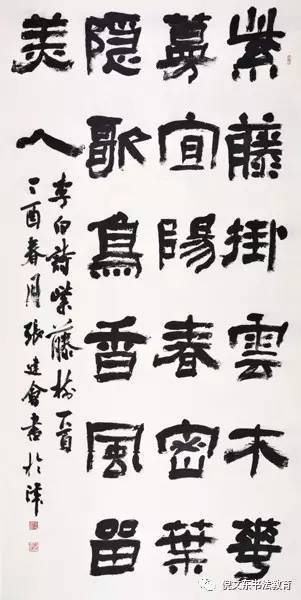 紫藤掛雲木華
蔓宜陽春密葉
隱歌鳥香風留
美人
李白詩紫藤樹一首
丁酉春月張建會書於津
倪文东书法教育